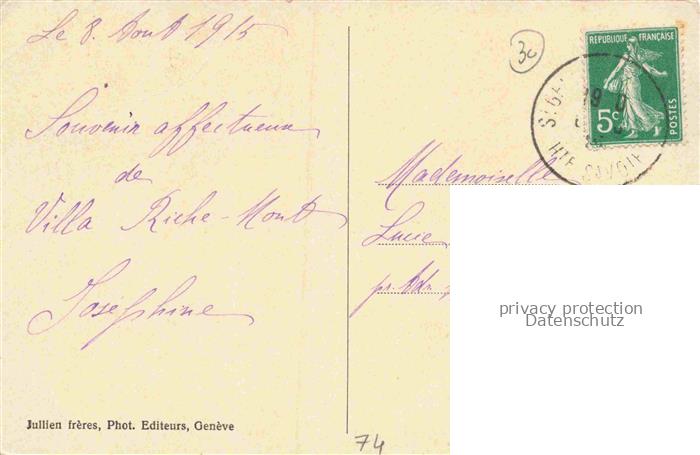 Le 8. Aout 1915
Souvenir affectueux
de
Villa Riche-Mont
Joséphine
Jullien frères, Phot. Editeurs, Genève
3c
REPUBLIQUE FRANÇAISE
5c
POSTES
HTE SAVOIE
Mademoiselle
Lucie
pr. Adr.
privacy protection
Datenschutz
74